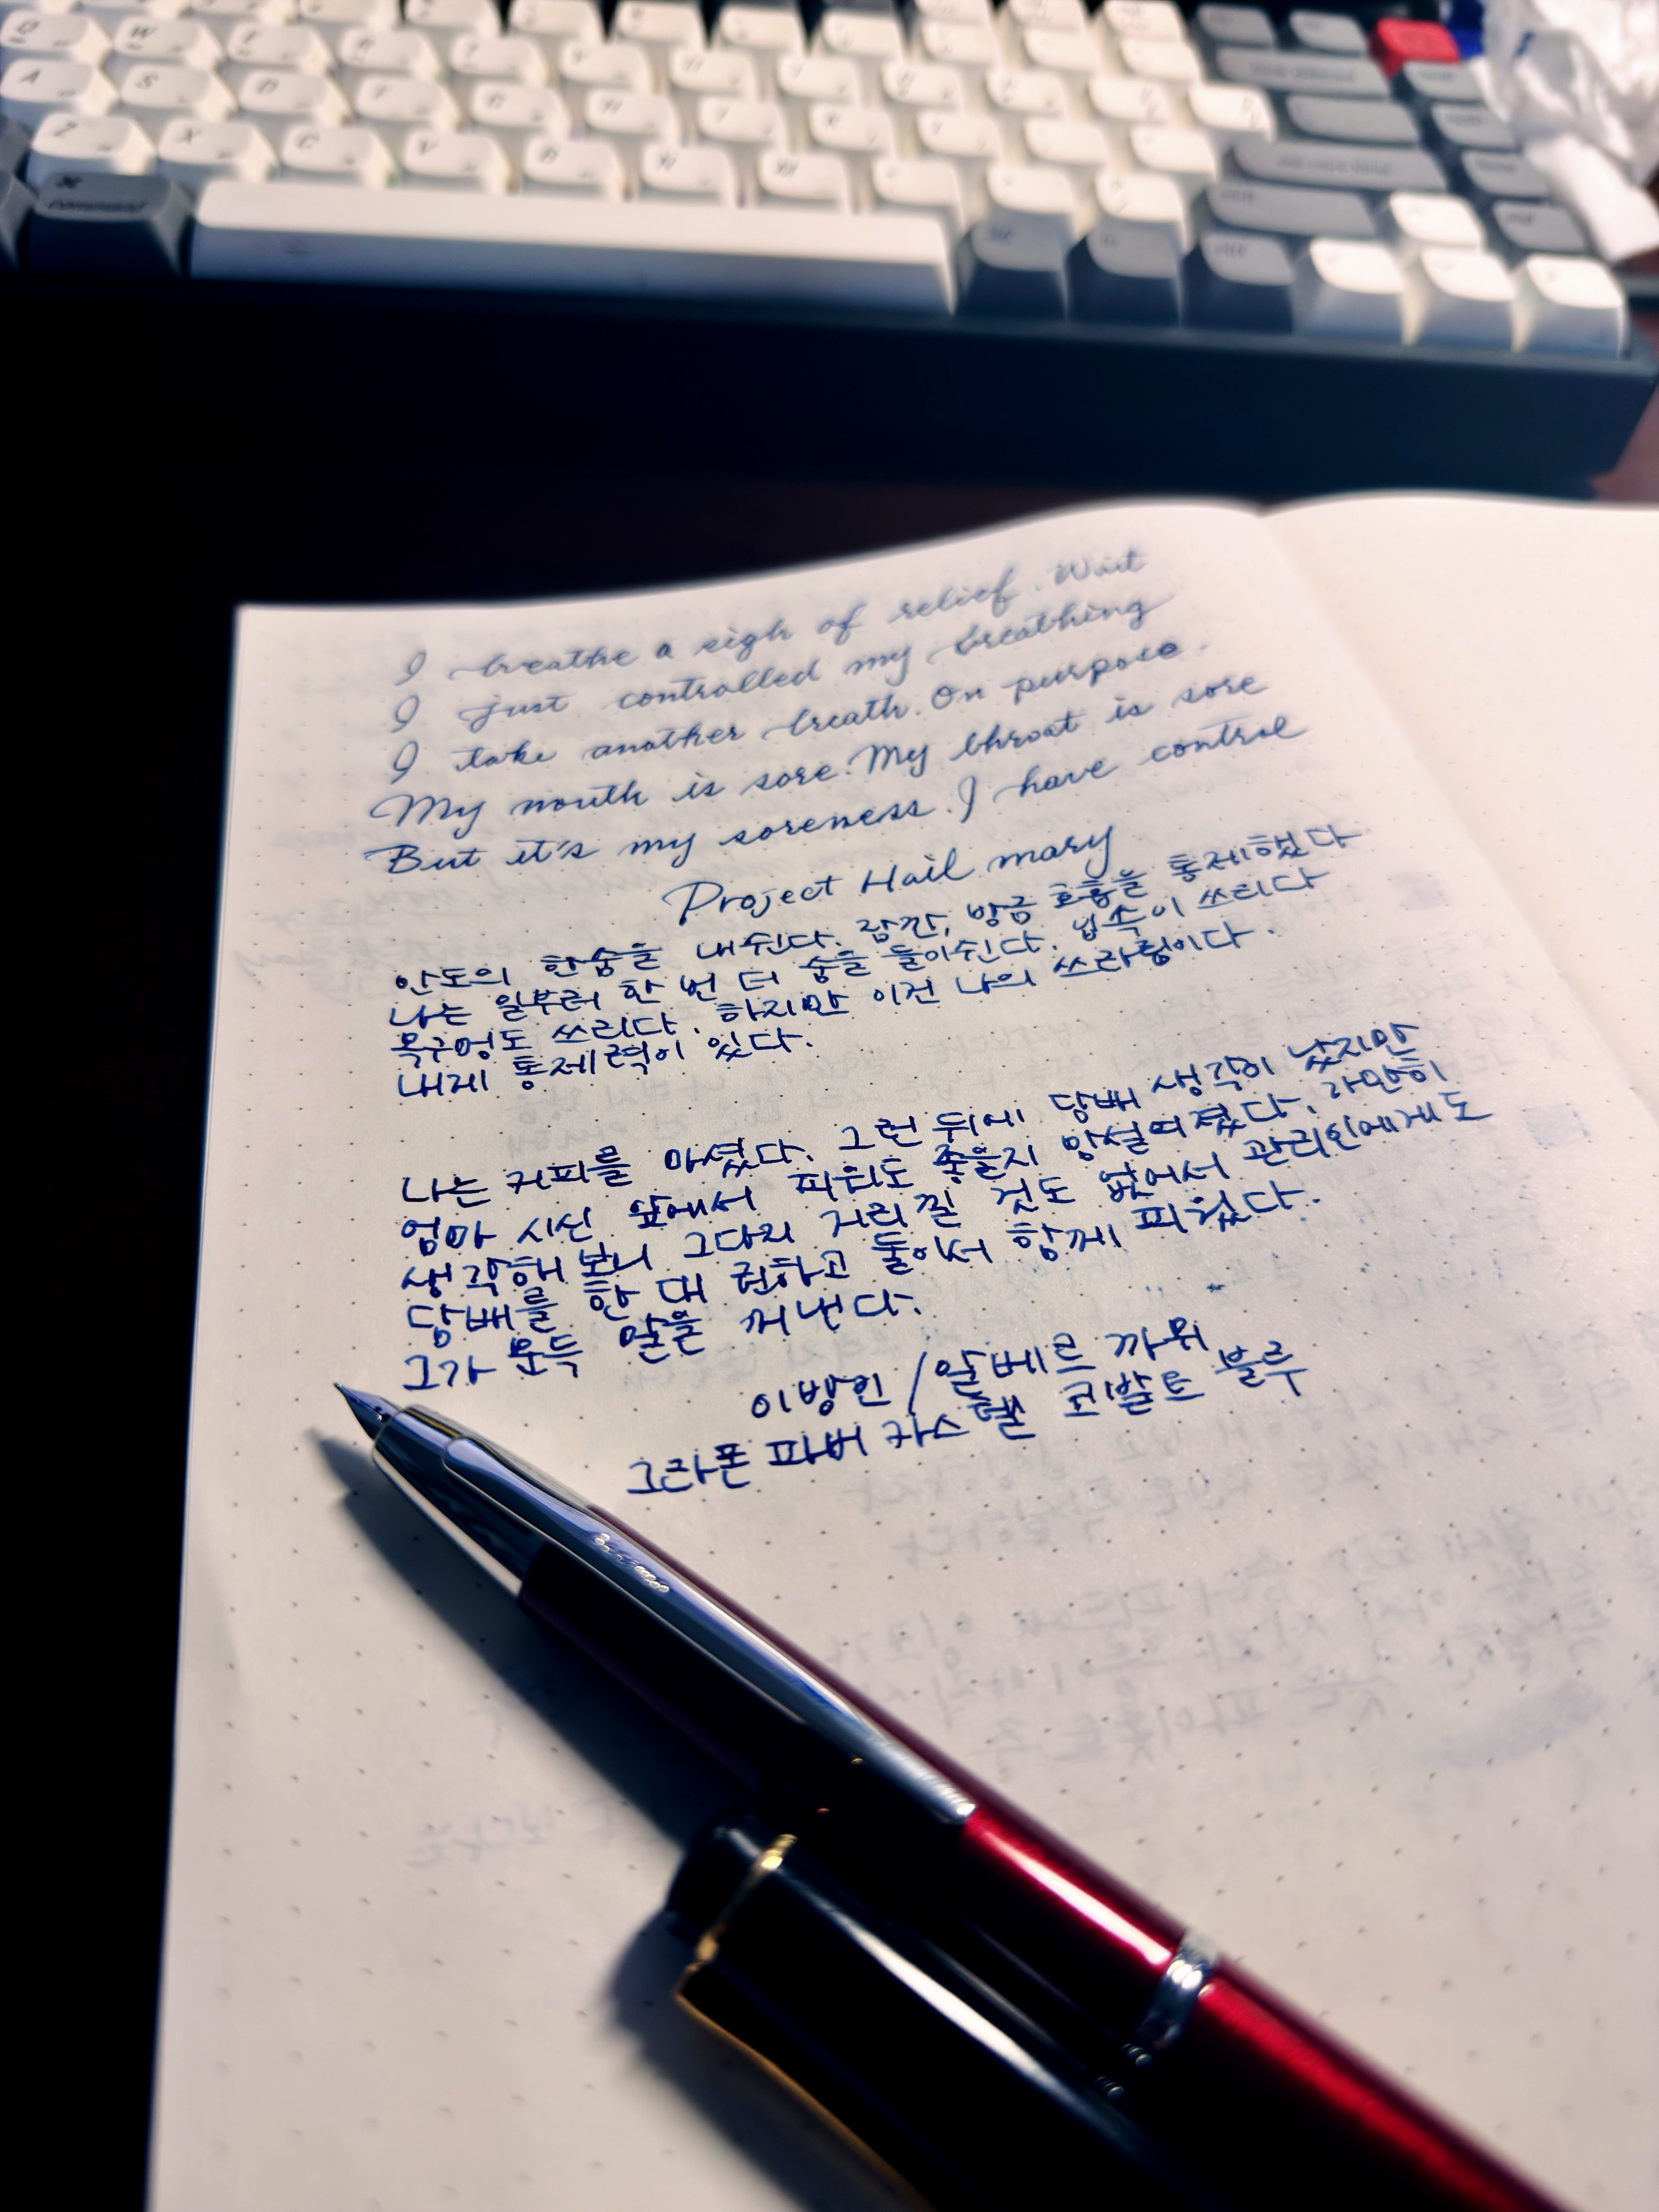 I breathe a sigh of relief. Wait
I just controlled my breathing
I take another breath. On purpose.
My mouth is sore. My throat is sore
But it's my soreness. I have control
Project Hail mary
안도의 한숨을 내쉰다. 잠깐, 방금 호흡을 통제했다
나는 일부러 한 번 더 숨을 들이쉰다. 입속이 쓰리다
목구멍도 쓰리다. 하지만 이건 나의 쓰라림이다.
내게 통제력이 있다.
나는 커피를 마셨다. 그런 뒤에 담배 생각이 났지만
엄마 시신 앞에서 피워도 좋을지 망설여졌다. 가만히
생각해 보니 그다지 거리낄 것도 없어서 관리인에게도
담배를 한 대 권하고 둘이서 함께 피웠다.
그가 문득 말을 꺼낸다.
이방인 / 알베르 까뮈
그라폰 파버 카스텔 코발트 블루
A S Z X C V
command